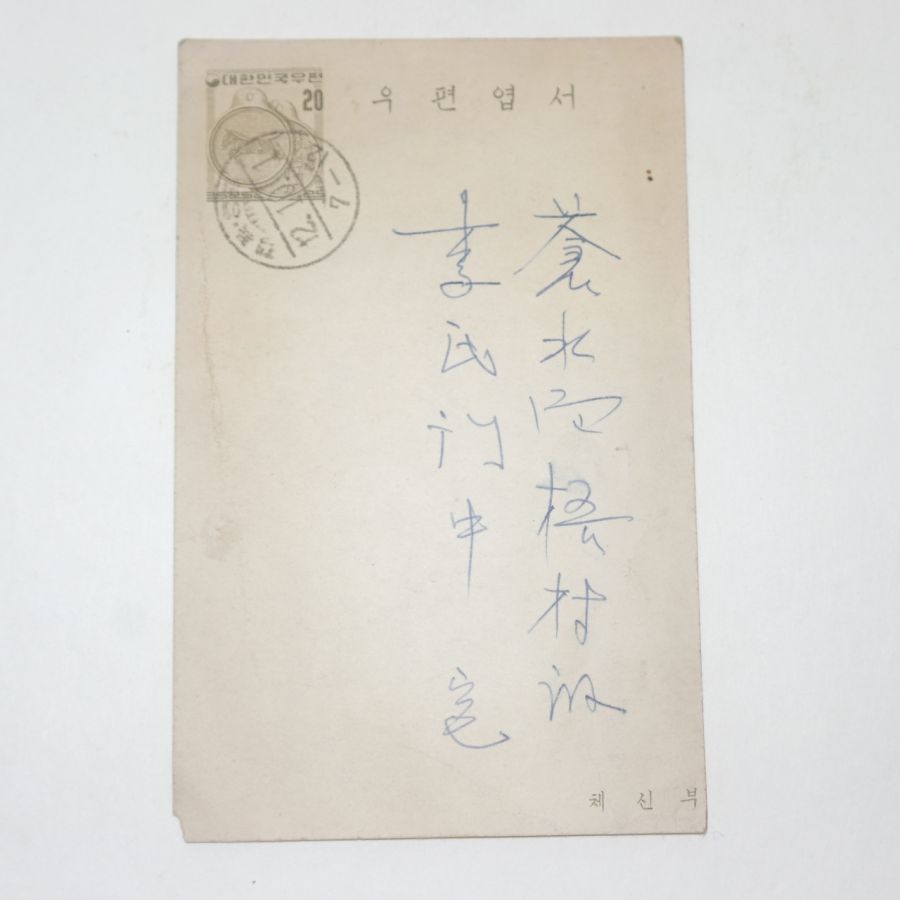 대한민국우편
20
우편엽서
蒼水面梧村部
李氏門中宅
체신부